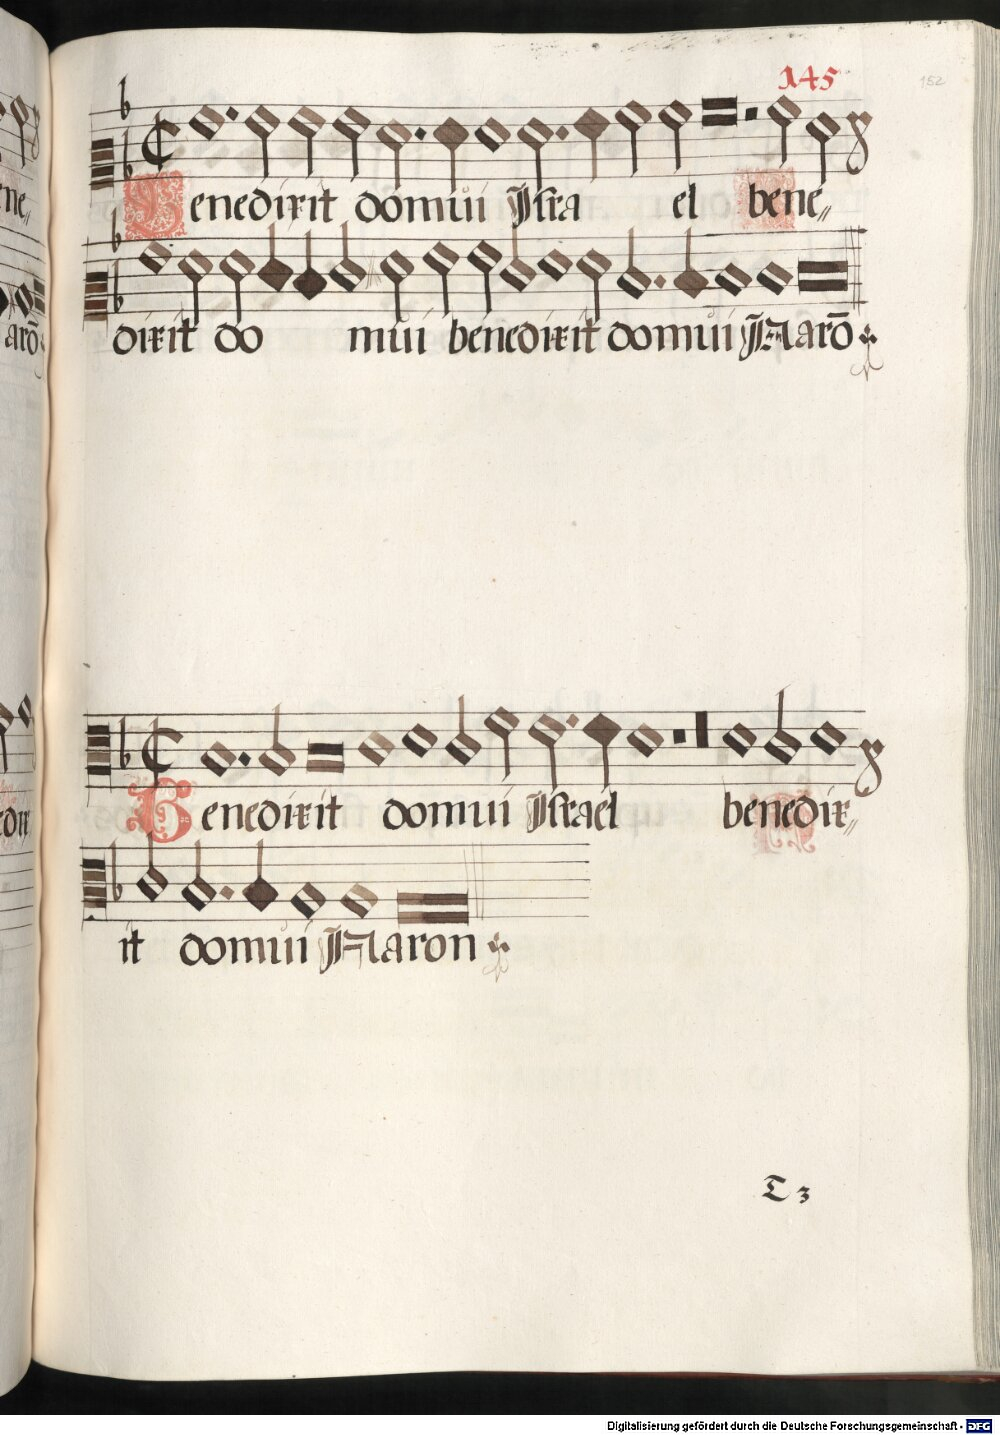 145
152
Benedixit domui Isra el bene〃
dixit do mui benedixit domui Aarō
Benedixit domui Israel benedix〃
it domui Aaron
T 3
ene〃
arō
edix
Digitalisierung gefördert durch die Deutsche Forschungsgemeinschaft - DFG